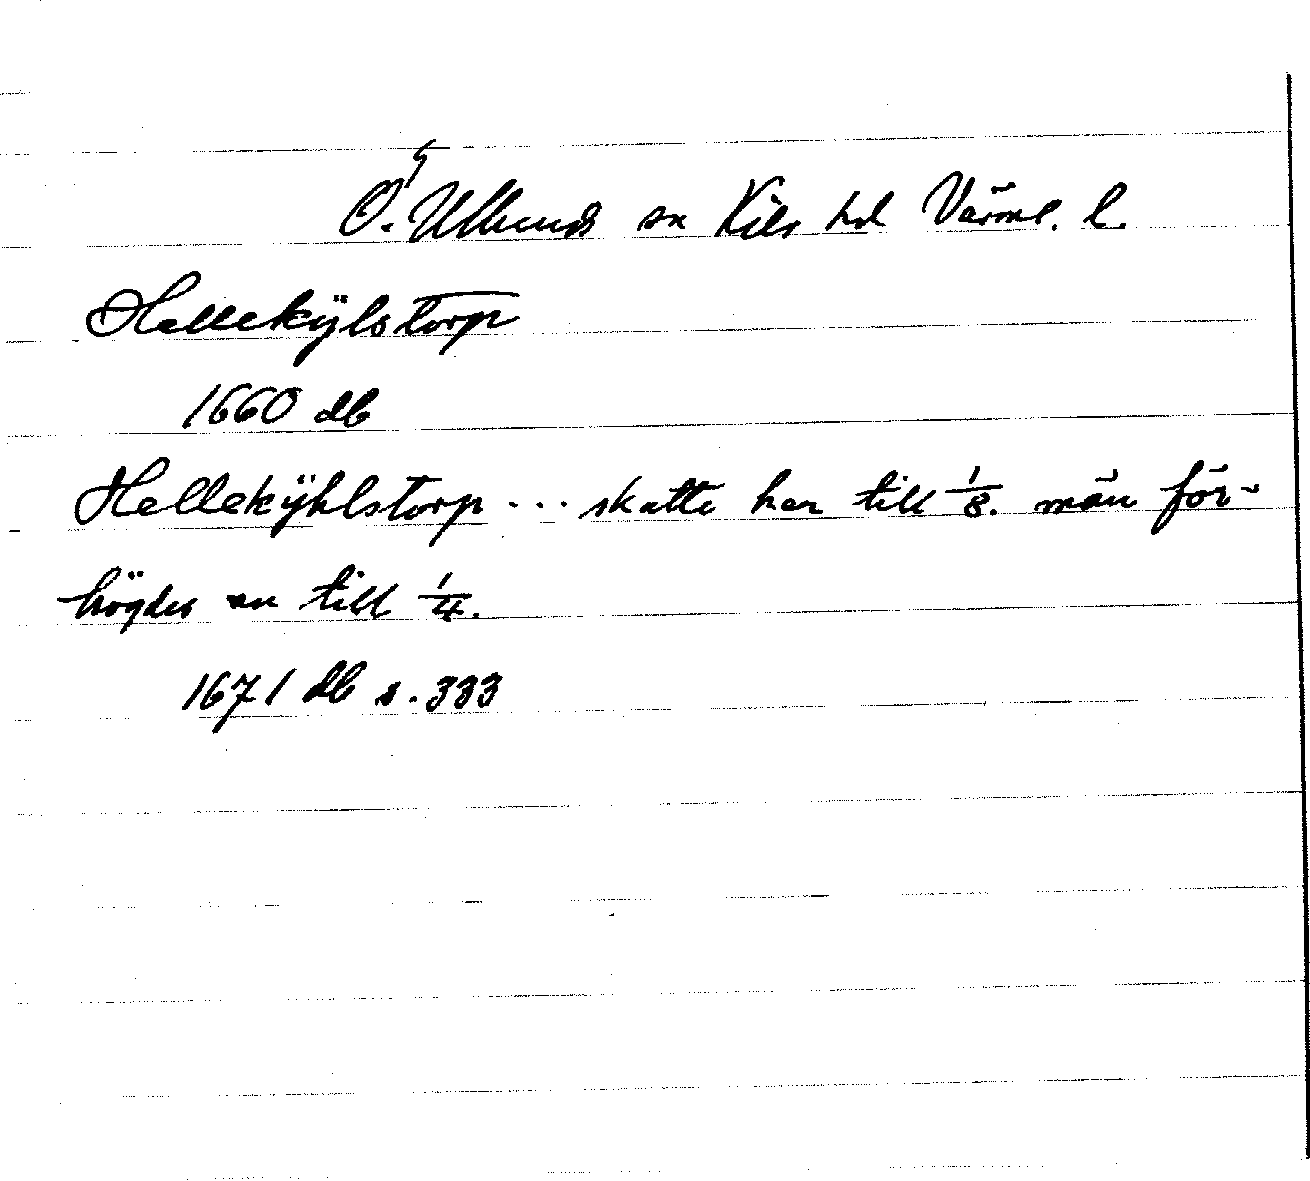 Ö. Ullerud sn Kils hd Värml. l.
Hellekÿlstorp
1660 db
Hellekÿhlstorp ... skatte har till 1/8. män för-
högdes an till 1/4.
1671 db s. 333